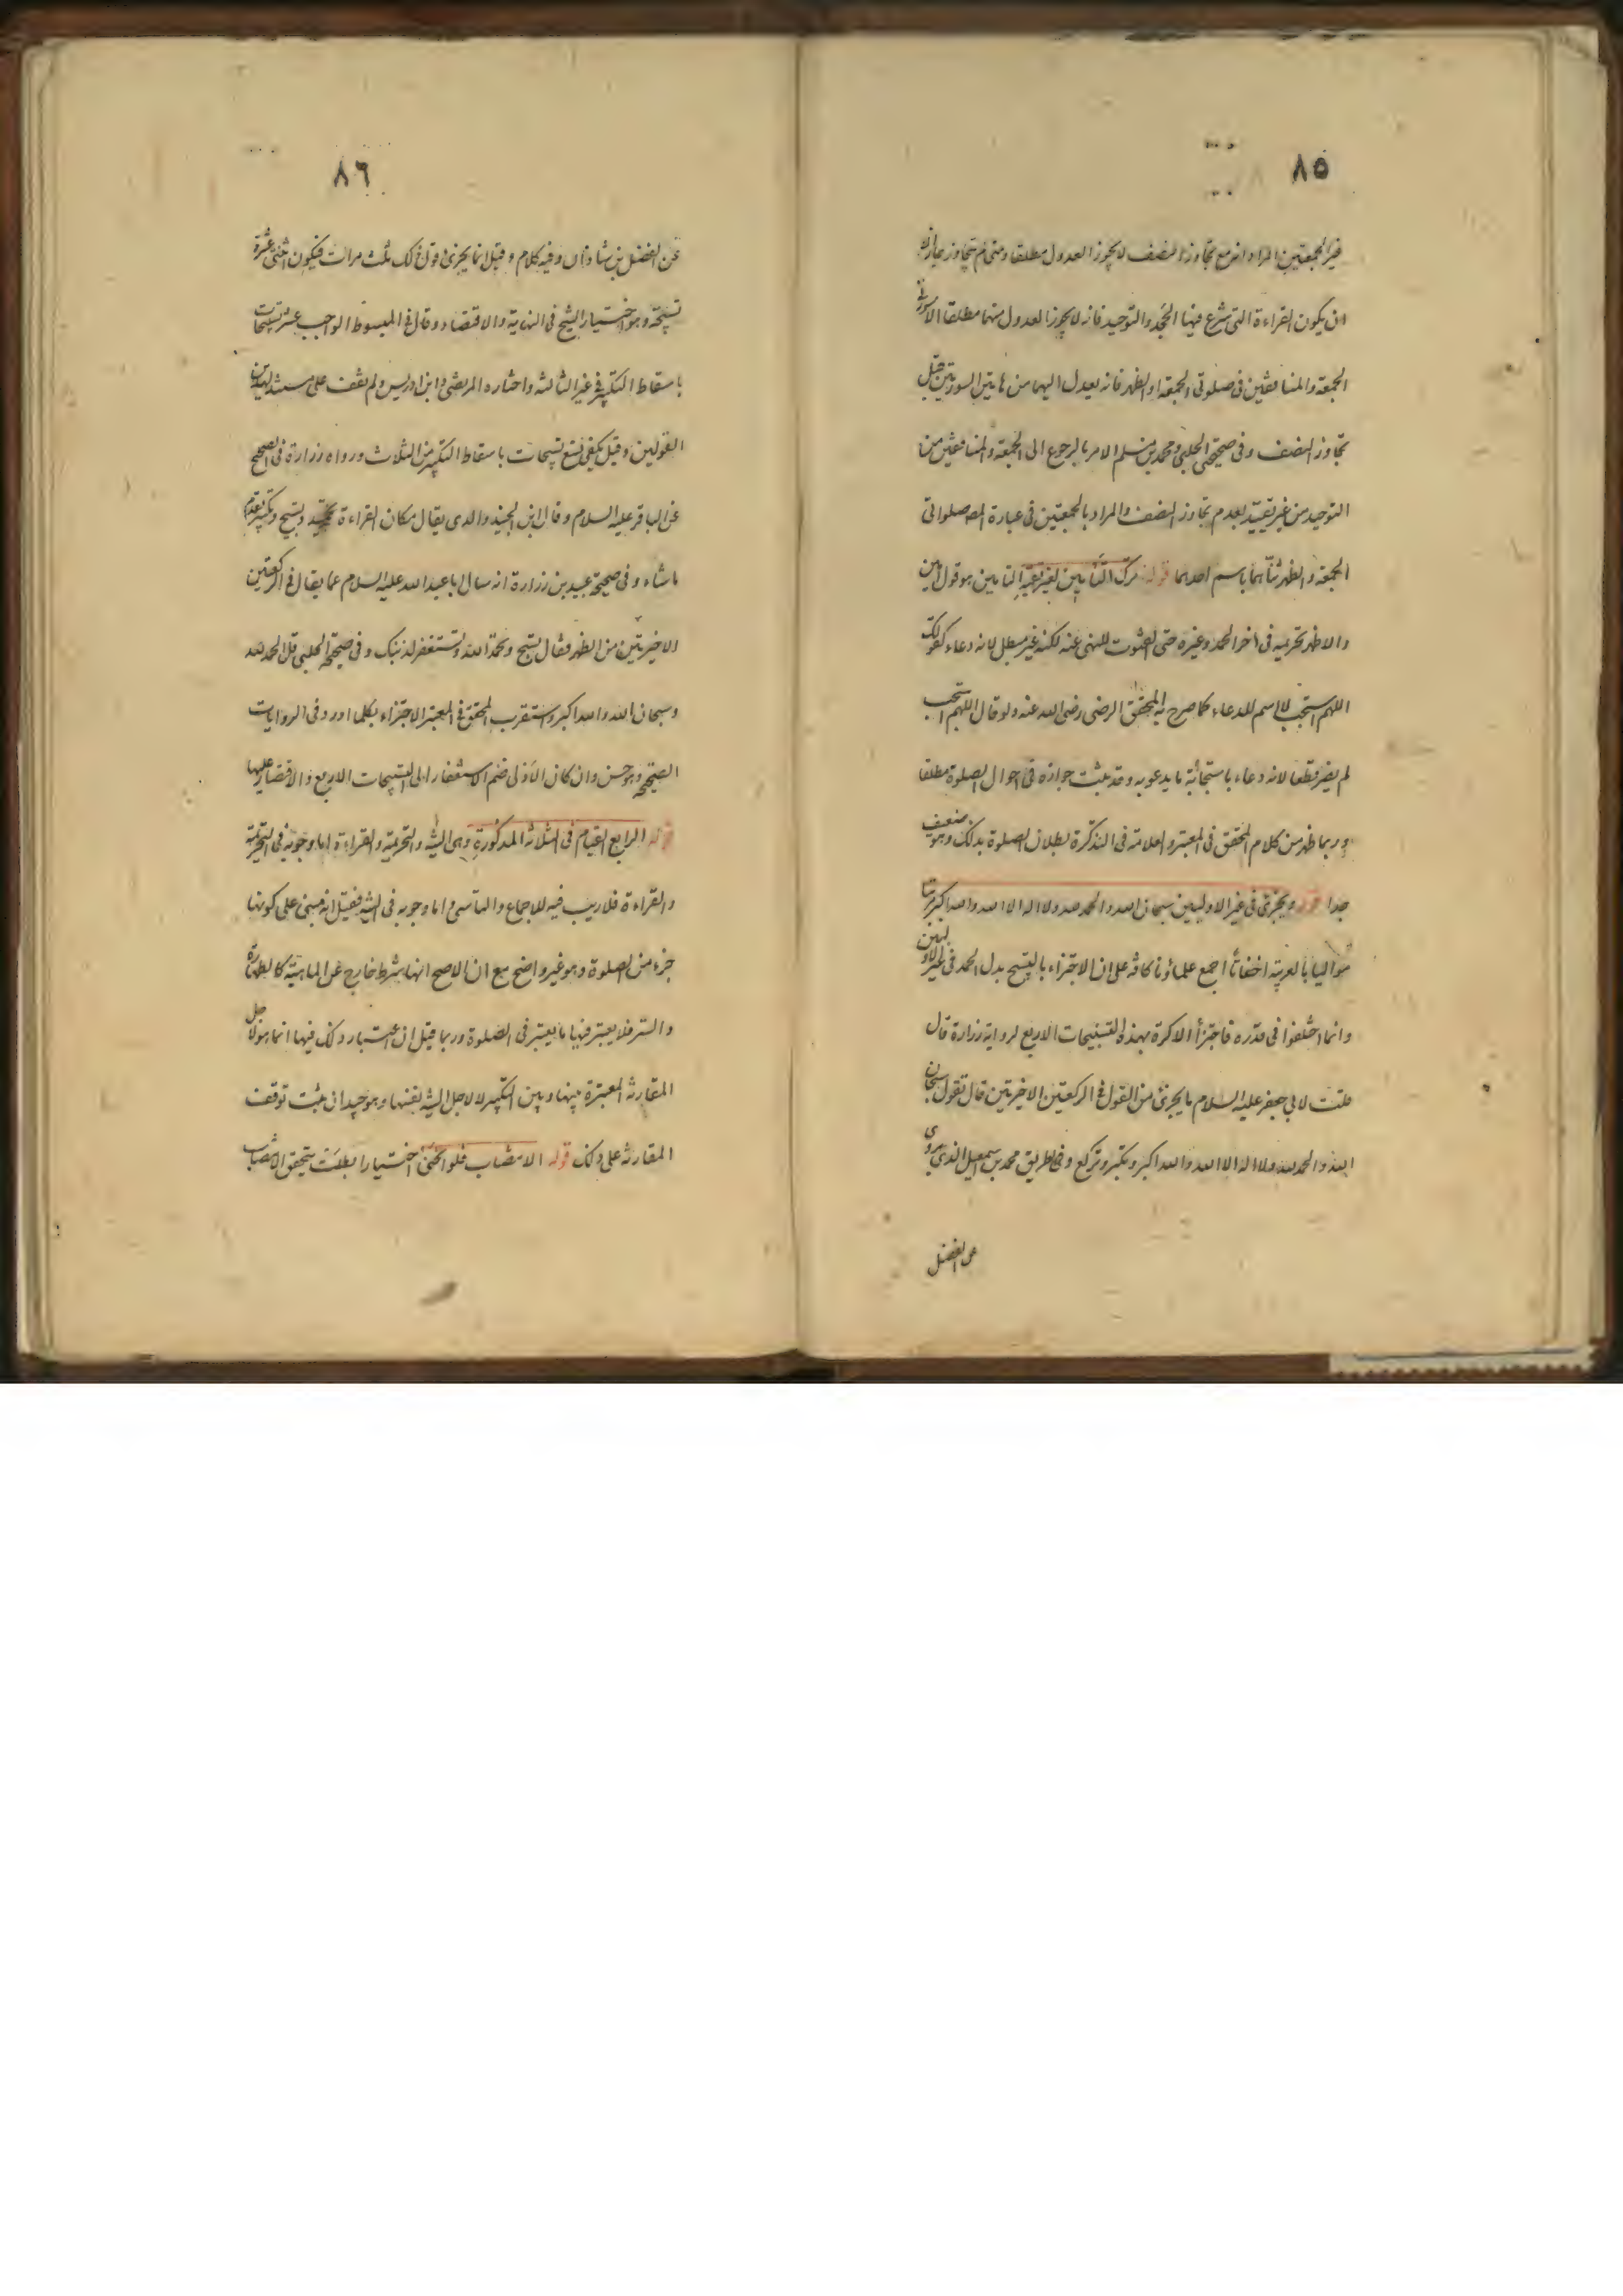 ٨٥
غير الجمعتين المراد انه مع تجاوز النصف لا يجوز العدول مطلقا ومتى لم يتجاوز جاز الا
ان يكون القراءة التى شرع فيها الجحد والتوحيد فانه لا يجوز العدول منهما مطلقا الا
الجمعة والمنافقين فى صلوتى الجمعة او الظهر فانه يعدل اليهما من هاتين السورتين قبل
تجاوز النصف وفى صحيحتى الحلبى ومحمد بن مسلم الامر بالرجوع الى الجمعة والمنافقين من
التوحيد من غير تقييد بعدم تجاوز النصف والمراد بالجمعتين فى عبارة المصه صلوتى
الجمعة والظهر ثناهما باسم احدهما قوله ترك التأمين لغير تقية التامين هو قول امين
والاظهر تحريمه فى اخر الحمد وغيره حتى القنوت للنهى عنه لكنه غير مبطل لانه دعاء كقولك
اللهم استجب لا اسم للدعاء كما صرح به المحقق الرضى رضى الله عنه ولو قال اللهم استجب
لم يضر قطعا لانه دعاء باستجابة ما يدعو به وقد ثبت جوازه فى احوال الصلوة مطلقا
وربما ظهر من كلام المحقق فى المعتبر والعلامة فى التذكرة بطلان الصلوة بذلك وهو ضعيف
جدا قوله ويجزى فى غير الاوليين سبحان الله والحمد لله ولا اله الا الله والله اكبر مرتبا
مواليا بالعربية اخفاتا اجمع علماؤنا كافة على ان الاجتزاء بالتسبيح بدل الحمد فى غير الاوليين
وانما اختلفوا فى قدره فاجتزأ الاكثر بهذه التسبيحات الاربع لرواية زرارة قال
قلت لابى جعفر عليه السلام ما يجزى من القول فى الركعتين الاخيرتين قال تقول سبحان
الله والحمد لله ولا اله الا الله والله اكبر وتكبر وتركع وفى طريق محمد بن اسمعيل الذى يروى
عن الفضل
٨٦
عن الفضل بن شاذان وفيه كلام وقيل انما يجزى قول ذلك ثلث مرات فيكون اثنى عشرة
تسبيحة وهو اختيار الشيخ فى النهاية والاقتصاد وقال فى المبسوط الواجب عشر تسبيحات
باسقاط التكبير فى غير الثالثة واختاره المرتضى وابن ادريس ولم نقف على مستند لهذين
القولين وقيل يكفى تسع تسبيحات باسقاط التكبير من الثلاث ورواه زرارة فى الصحيح
عن الباقر عليه السلام وقال ابن الجنيد والذى يقال مكان القراءة تحميد وتسبيح وتكبير يقدم
ما شاء وفى صحيحة عبيد بن زرارة انه سال ابا عبد الله عليه السلام عما يقال فى الركعتين
الاخيرتين من الظهر فقال تسبح وتحمد الله وتستغفر لذنبك وفى صحيحة الحلبى قل الحمد لله
وسبحان الله والله اكبر واستقرب المحقق فى المعتبر الاجتزاء بكلما ورد فى الروايات
الصحيحة وهو حسن وان كان الاولى ضم الاستغفار الى التسبيحات الاربع والاقتصار عليها
قوله الرابع القيام فى الثلاثة المذكورة وهى النية والتحريمة والقراءة اما وجوبه فى التحريمة
والقراءة فلا ريب فيه للاجماع والتاسى واما وجوبه فى النية فقيل انه مبنى على كونها
جزء من الصلوة وهو غير واضح مع ان الاصح انها شرط خارج عن الماهية كالطهارة
والستر فلا يعتبر فيها ما يعتبر فى الصلوة وربما قيل ان اعتبار ذلك فيها انما هو لاجل
المقارنة المعتبرة بينها وبين التكبير لا لاجل النية نفسها وهو جيد ان ثبت توقف
المقارنة على ذلك قوله الانتصاب فلو انحنى اختيارا بطلت يتحقق الانتصاب